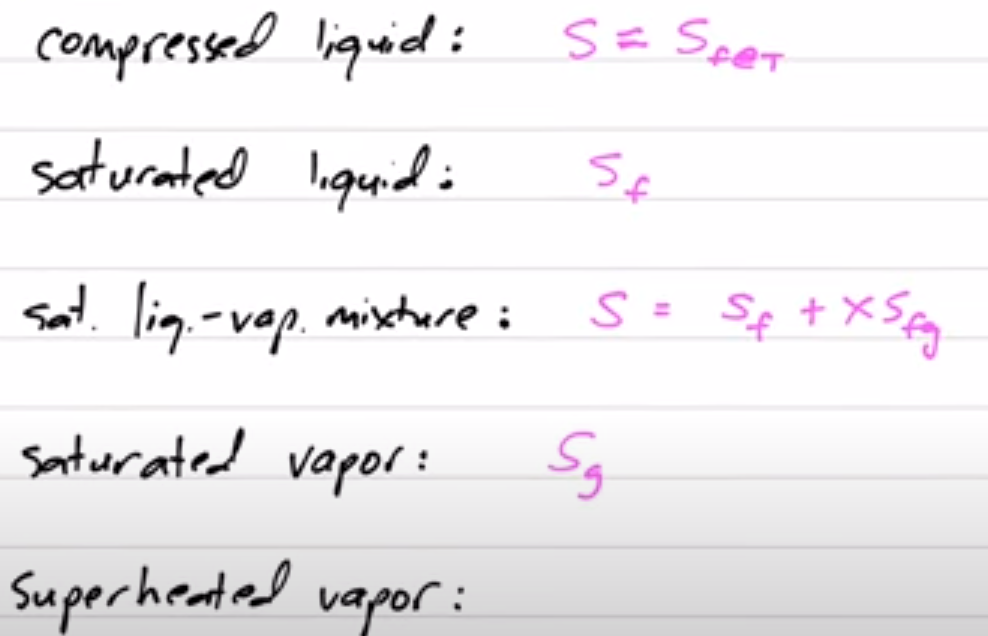 compressed liquid: S ≈ S_f@T
saturated liquid: S_f
sat. liq.-vap. mixture: S = S_f + x S_fg
saturated vapor: S_g
Superheated vapor: